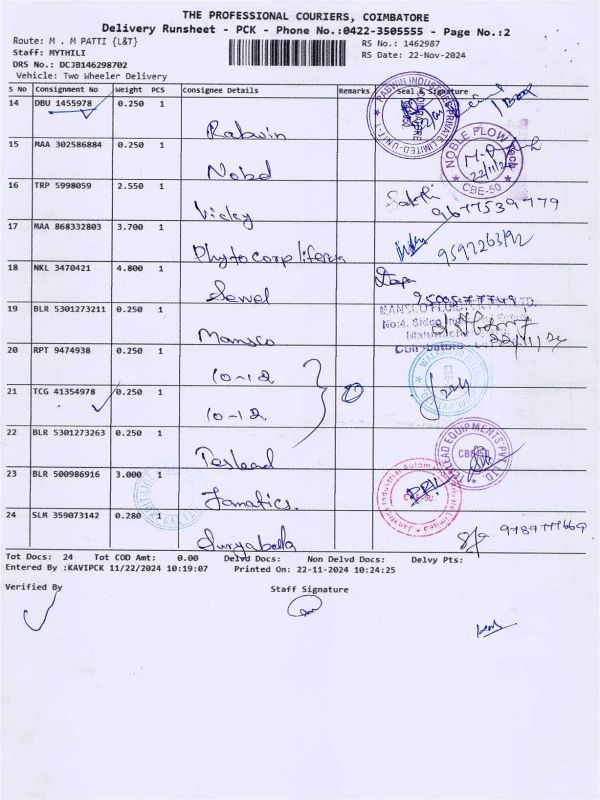 THE PROFESSIONAL COURIERS, COIMBATORE
Delivery Runsheet - PCK - Phone No.:0422-3505555 - Page No.:2
Route: M . M PATTI {L&T}
RS No.: 1462987
Staff: MYTHILI
RS Date: 22-Nov-2024
DRS No.: DCJB146298702
Vehicle: Two Wheeler Delivery
S No Consignment No Weight PCS Consignee Details Remarks Seal & Signature
14 DBU 1455978 0.250 1
Rabwin
15 MAA 302586884 0.250 1
Nobel
NOBLE FLOW
22/11/24
CBE-50
16 TRP 5998059 2.550 1
Vicky
Sakthi
9677539779
17 MAA 868332803 3.700 1
Phytocorp lifecare
9597263192
18 NKL 3470421 4.800 1
Sewel
9500577749
19 BLR 5301273211 0.250 1
Mansco
No:4, Sidco
20 RPT 9474938 0.250 1
10-12
21 TCG 41354978 0.250 1
10-12
22 BLR 5301273263 0.250 1
Teslead
TESLEAD EQUIPMENTS PVT LTD.
CBE-50
23 BLR 500986916 3.000 1
Janatics.
24 SLM 359073142 0.280 1
Suryabala
9789777669
Tot Docs: 24 Tot COD Amt: 0.00 Delvd Docs: Non Delvd Docs: Delvy Pts:
Entered By :KAVIPCK 11/22/2024 10:19:07 Printed On: 22-11-2024 10:24:25
Verified By Staff Signature